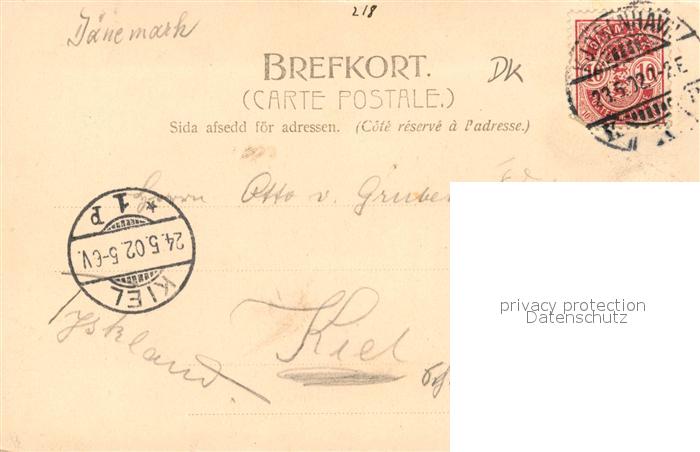 218
Dänemark
BREFKORT.
DK
(CARTE POSTALE.)
Sida afsedd för adressen. (Côté réservé à l'adresse.)
10 10
23.5.02
Herrn Otto v. Gruber
KIEL
24.5.02.5-6V.
* 1 P
Kiel
privacy protection
Datenschutz